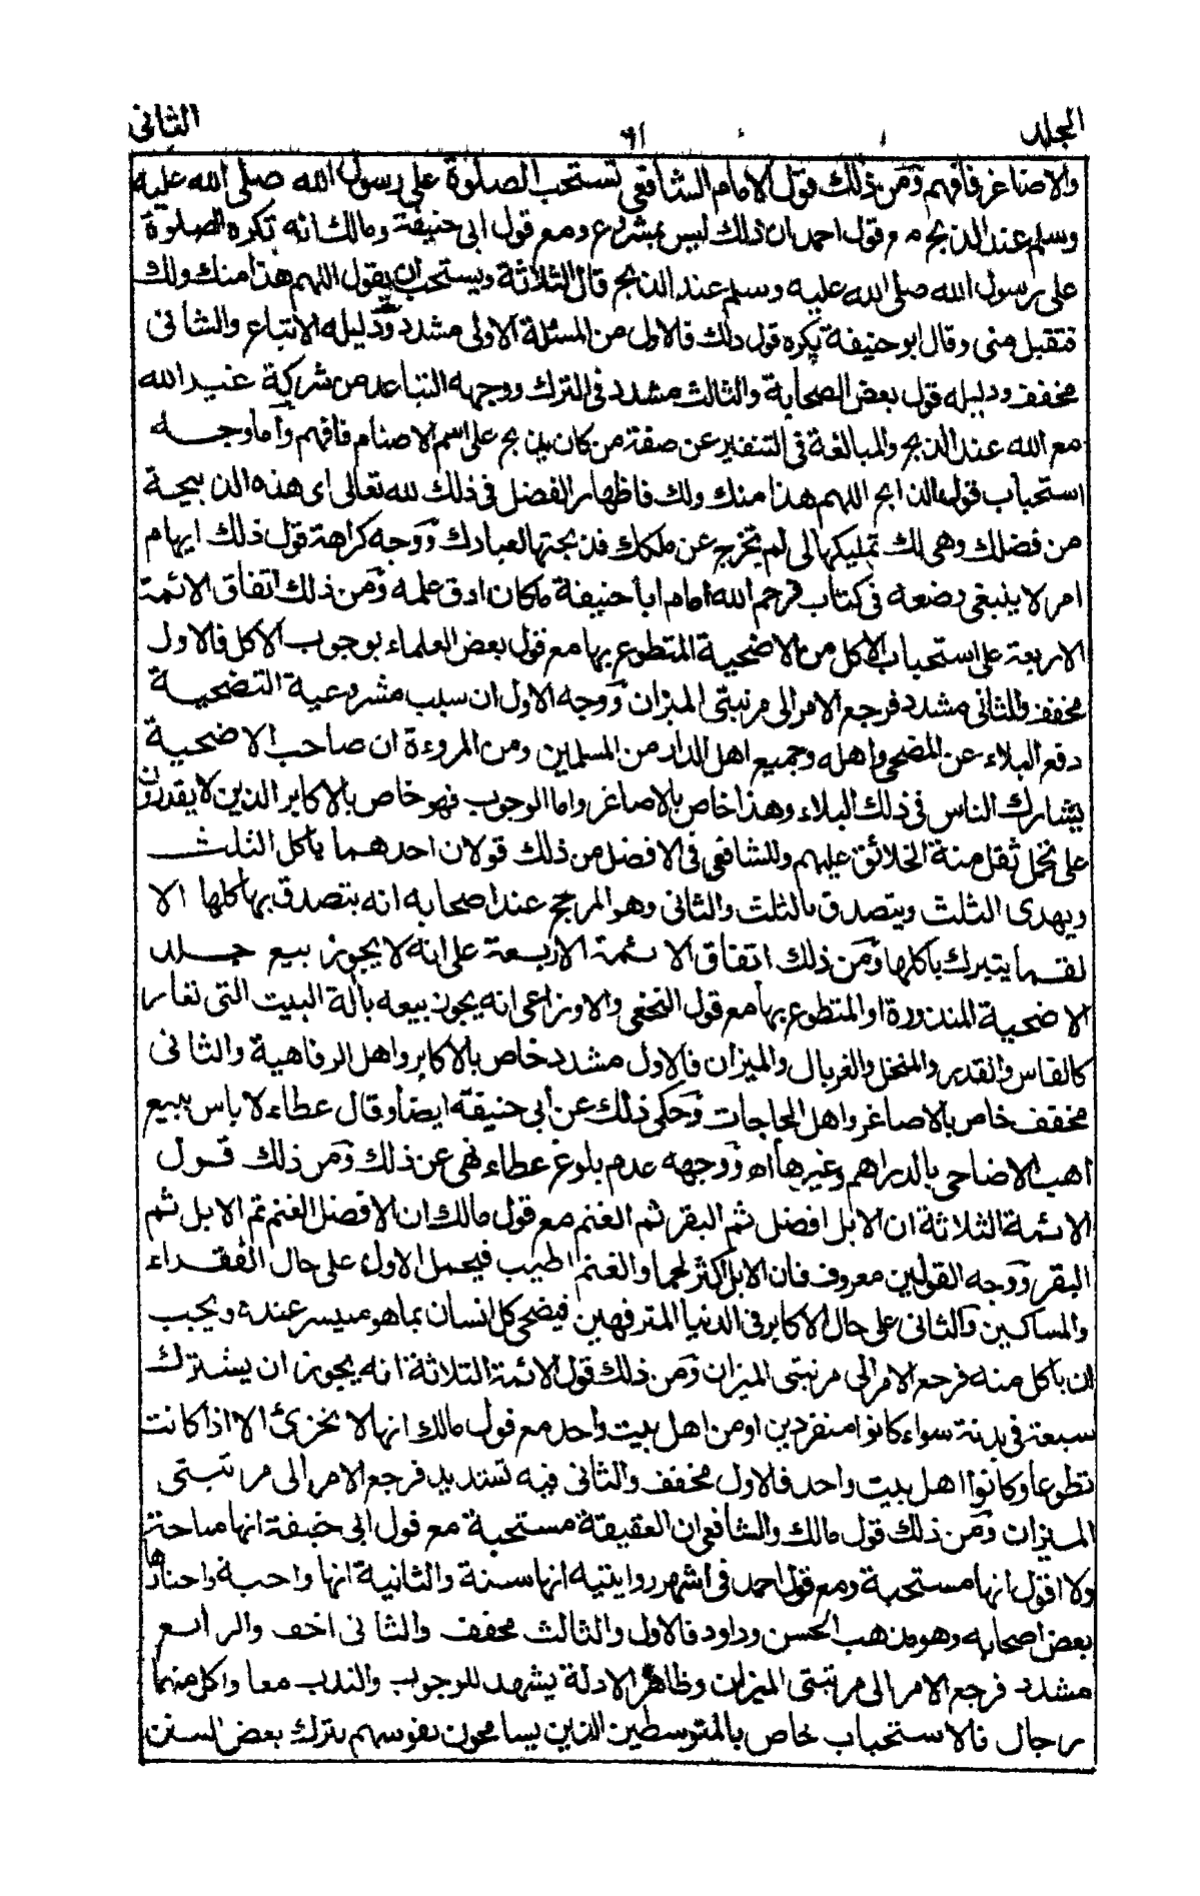 المجلد
٦١
الثانى
والاصاغر فافهم ومن ذلك قول الامام الشافعى تستحب الصلوة على رسول الله صلى الله عليه
وسلم عند الذبح مع قول احمد ان ذلك ليس بمشروع ومع قول ابى حنيفة ومالك انه تكره الصلوة
على رسول الله صلى الله عليه وسلم عند الذبح قال الثلاثة ويستحب ان يقول اللهم هذا منك ولك
فتقبل منى وقال ابو حنيفة يكره قول ذلك فالاول من المسئلة الاولى مشدد ودليله الاتباع والثانى
مخفف ودليله قول بعض الصحابة والثالث مشدد فى الترك ووجهه التباعد من شركة غير الله
مع الله عند الذبح والمبالغة فى التنفير عن صفة من كان يذبح على اسم الاصنام فافهم واما وجه
استحباب قول الذابح اللهم هذا منك ولك فاظهار الفضل فى ذلك لله تعالى اى هذه الذبيحة
من فضلك وهى لك تمليكها لى لم يخرج عن ملكك فذبحتها لعبادك ووجه كراهة قول ذلك ايهام
امر لا ينبغى وضعه فى كتاب فرحم الله الامام ابا حنيفة ما كان ادق علمه ومن ذلك اتفاق الائمة
الاربعة على استحباب الاكل من الاضحية المتطوع بها مع قول بعض العلماء بوجوب الاكل فالاول
مخفف والثانى مشدد فرجع الامر الى مرتبتى الميزان ووجه الاول ان سبب مشروعية التضحية
دفع البلاء عن المضحى واهله وجميع اهل الدار من المسلمين ومن المروءة ان صاحب الاضحية
يشارك الناس فى ذلك البلاء وهذا خاص بالاصاغر واما الوجوب فهو خاص بالاكابر الذين لا يقدرون
على تحمل ثقل منة الخلائق عليهم وللشافعى فى الافضل من ذلك قولان احدهما ياكل الثلث
ويهدى الثلث ويتصدق بالثلث والثانى وهو المرجح عند اصحابه انه يتصدق بها كلها الا
لقما يتبرك باكلها ومن ذلك اتفاق الائمة الاربعة على انه لا يجوز بيع جلد
الاضحية المنذورة او المتطوع بها مع قول النخعى والاوزاعى انه يجوز بيعه بآلة البيت التى تعار
كالفاس والقدر والمنخل والغربال والميزان فالاول مشدد خاص بالاكابر واهل الرفاهية والثانى
مخفف خاص بالاصاغر واهل الحاجات وحكى ذلك عن أبى حنيفة ايضا وقال عطاء لا باس ببيع
اهب الاضاحى بالدراهم وغيرها اه ووجهه عدم بلوغ عطاء نهى عن ذلك ومن ذلك قول
الائمة الثلاثة ان الابل افضل ثم البقر ثم الغنم مع قول مالك ان الافضل الغنم ثم الابل ثم
البقر ووجه القولين معروف فان الابل اكثر لحما والغنم اطيب فيحمل الاول على حال الفقراء
والمساكين والثانى على حال الاكابر فى الدنيا المترفهين فيضحى كل انسان بما هو ميسر عنده ويجب
ان ياكل منه فرجع الامر الى مرتبتى الميزان ومن ذلك قول الائمة الثلاثة انه يجوز ان يشترك
سبعة فى بدنة سواء كانوا منفردين او من اهل بيت واحد مع قول مالك انها لا تجزئ الا اذا كانت
تطوعا وكانوا اهل بيت واحد فالاول مخفف والثانى فيه تشديد فرجع الامر الى مرتبتى
الميزان ومن ذلك قول مالك والشافعى ان العقيقة مستحبة مع قول ابى حنيفة انها مباحة
ولا اقول انها مستحبة ومع قول احمد فى اشهر روايتيه انها سنة والثانية انها واجبة واختارها
بعض اصحابه وهو مذهب الحسن وداود فالاول والثالث مخفف والثانى اخف والرابع
مشدد فرجع الامر الى مرتبتى الميزان وظاهر الادلة يشهد للوجوب والندب معا ولكل منهما
رجال فالاستحباب خاص بالمتوسطين الذين يسامحون نفوسهم بترك بعض السنن